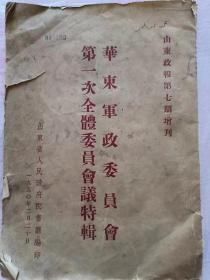 山東政報第七期增刊
華東軍政委員會
第一次全體委員會議特輯
山東省人民政府秘書廳編印
一九五〇年三月二十日